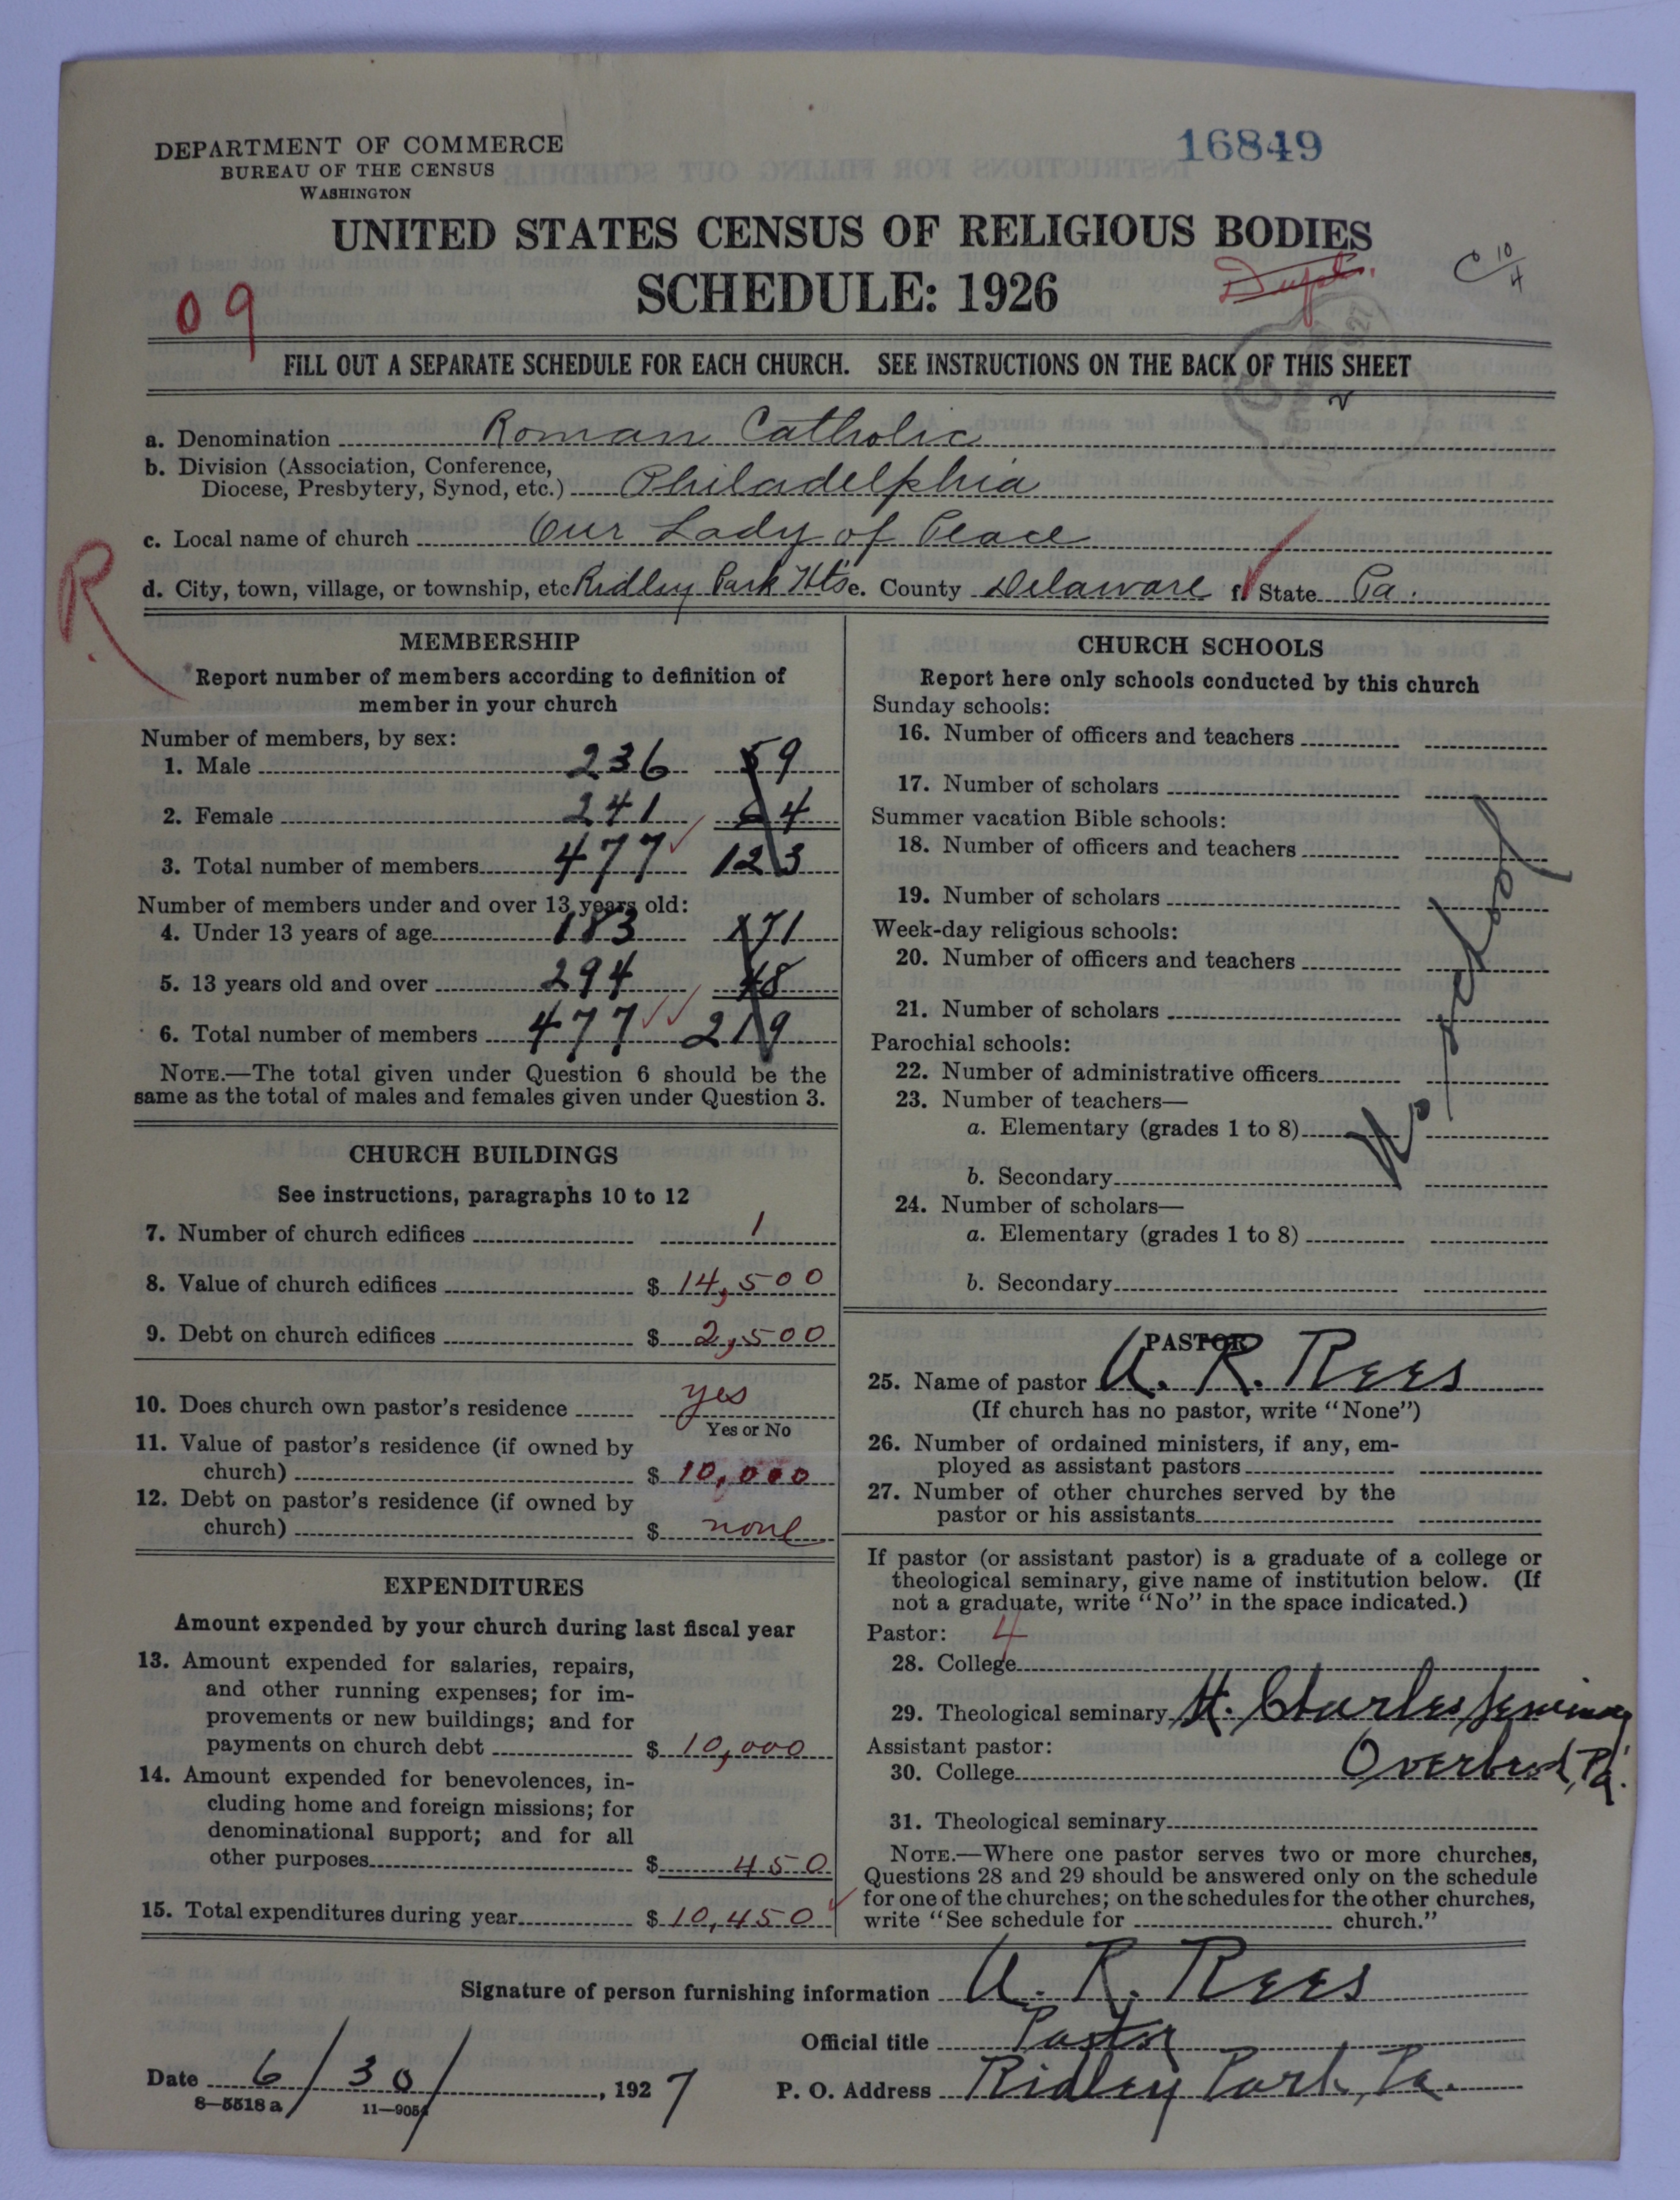 DEPARTMENT OF COMMERCE
BUREAU OF THE CENSUS
WASHINGTON
16849
UNITED STATES CENSUS OF RELIGIOUS BODIES
SCHEDULE: 1926
Dupt.
C 10/4
09
FILL OUT A SEPARATE SCHEDULE FOR EACH CHURCH. SEE INSTRUCTIONS ON THE BACK OF THIS SHEET
a. Denomination Roman Catholic
b. Division (Association, Conference,
Diocese, Presbytery, Synod, etc.) Philadelphia
c. Local name of church Our Lady of Peace
R
d. City, town, village, or township, etc Ridley Park Hts e. County Delaware f. State Pa.
MEMBERSHIP
Report number of members according to definition of
member in your church
Number of members, by sex:
1. Male 236 59
2. Female 241 64
3. Total number of members 477 123
Number of members under and over 13 years old:
4. Under 13 years of age 183 171
5. 13 years old and over 294 48
6. Total number of members 477 219
NOTE.—The total given under Question 6 should be the
same as the total of males and females given under Question 3.
CHURCH BUILDINGS
See instructions, paragraphs 10 to 12
7. Number of church edifices 1
8. Value of church edifices $ 14,500
9. Debt on church edifices $ 2,500
10. Does church own pastor's residence yes
Yes or No
11. Value of pastor's residence (if owned by
church) $ 10,000
12. Debt on pastor's residence (if owned by
church) $ none
EXPENDITURES
Amount expended by your church during last fiscal year
13. Amount expended for salaries, repairs,
and other running expenses; for im-
provements or new buildings; and for
payments on church debt $ 10,000
14. Amount expended for benevolences, in-
cluding home and foreign missions; for
denominational support; and for all
other purposes $ 450
15. Total expenditures during year $ 10,450
CHURCH SCHOOLS
Report here only schools conducted by this church
Sunday schools:
16. Number of officers and teachers
17. Number of scholars
Summer vacation Bible schools:
18. Number of officers and teachers
19. Number of scholars
Week-day religious schools:
20. Number of officers and teachers
21. Number of scholars
Parochial schools:
22. Number of administrative officers
23. Number of teachers—
a. Elementary (grades 1 to 8)
b. Secondary
24. Number of scholars—
a. Elementary (grades 1 to 8)
b. Secondary
No school
PASTOR
25. Name of pastor A. R. Rees
(If church has no pastor, write "None")
26. Number of ordained ministers, if any, em-
ployed as assistant pastors
27. Number of other churches served by the
pastor or his assistants
If pastor (or assistant pastor) is a graduate of a college or
theological seminary, give name of institution below. (If
not a graduate, write "No" in the space indicated.)
Pastor: 4
28. College
29. Theological seminary St. Charles Seminary
Assistant pastor:
30. College Overbrook, Pa.
31. Theological seminary
NOTE.—Where one pastor serves two or more churches,
Questions 28 and 29 should be answered only on the schedule
for one of the churches; on the schedules for the other churches,
write "See schedule for church."
Signature of person furnishing information A. R. Rees
Official title Pastor
Date 6/30/, 1927
P. O. Address Ridley Park, Pa.
8—5518 a
11—9054